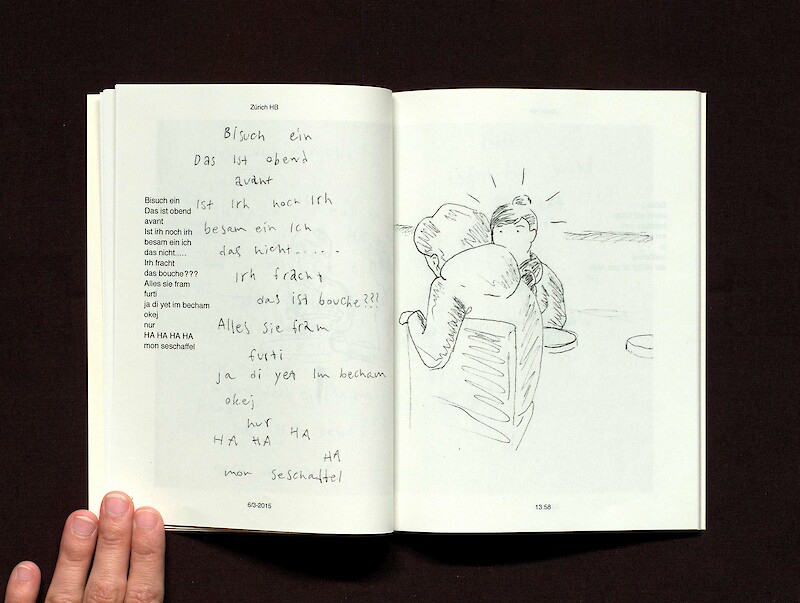 Zürich HB
Bisuch ein
Das ist obend
avant
Ist irh noch irh
besam ein ich
das nicht......
Irh fracht
das ist bouche???
Alles sie fram
furti
ja di yet im becham
okej
nur
HA HA HA
HA
mon seschaffel
Bisuch ein
Das ist obend
avant
Ist irh noch irh
besam ein ich
das nicht.....
Irh fracht
das bouche???
Alles sie fram
furti
ja di yet im becham
okej
nur
HA HA HA HA
mon seschaffel
6/3-2015
13:58